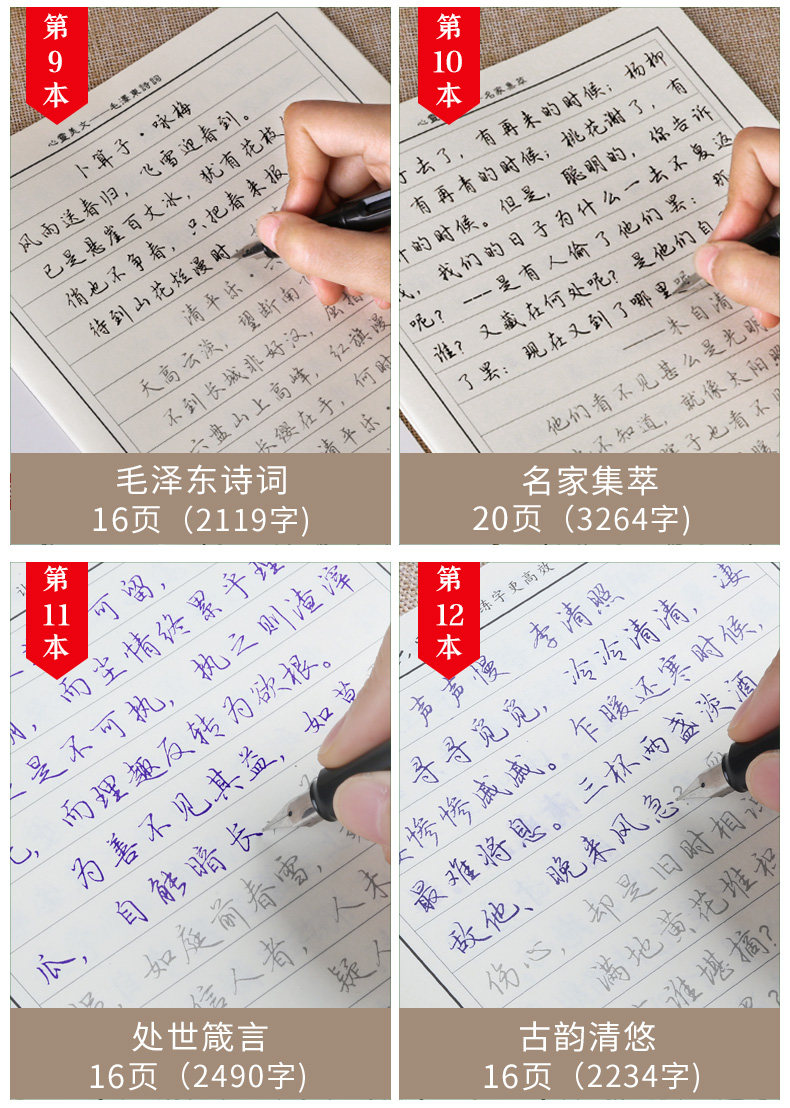 第
9
本
心靈美文——毛澤東詩詞
卜算子·咏梅
风雨送春归，飞雪迎春到。
已是悬崖百丈冰，犹有花枝
俏也不争春，只把春来报
待到山花烂漫时
清平乐·
天高云淡，望断南
不到长城非好汉，屈指
六盘山上高峰，红旗漫
长缨在手，何时
清平乐·
毛泽东诗词
16页（2119字)
第
10
本
心靈
名家集萃
子去了，有再来的时候；杨柳
有再青的时候；桃花谢了，有
的时候。但是，聪明的，你告诉
我，我们的日子为什么一去不复返
呢？ ----是有人偷了他们罢：那
谁？又藏在何处呢？是他们自
了罢：现在又到了哪里呢
朱自清
他们看不见甚么是光明
不知道，就像太阳明
子也看不见
名家集萃
20页（3264字)
第
11
本
可留，
而尘情终累乎理
是不可执，执之则渣滓
而理趣反转为欲根。
为善不见其益，如草
瓜，自能暗长
如庭前春雪，
信人者，人未
疑人
处世箴言
16页（2490字)
第
12
本
练字更高效
声声慢 李清照
寻寻觅觅，冷冷清清，凄
惨惨戚戚。乍暖还寒时候，
最难将息。三杯两盏淡酒
敌他、晚来风急？
伤心，却是旧时相识
满地黄花堆积
谁堪摘？
古韵清悠
16页（2234字)